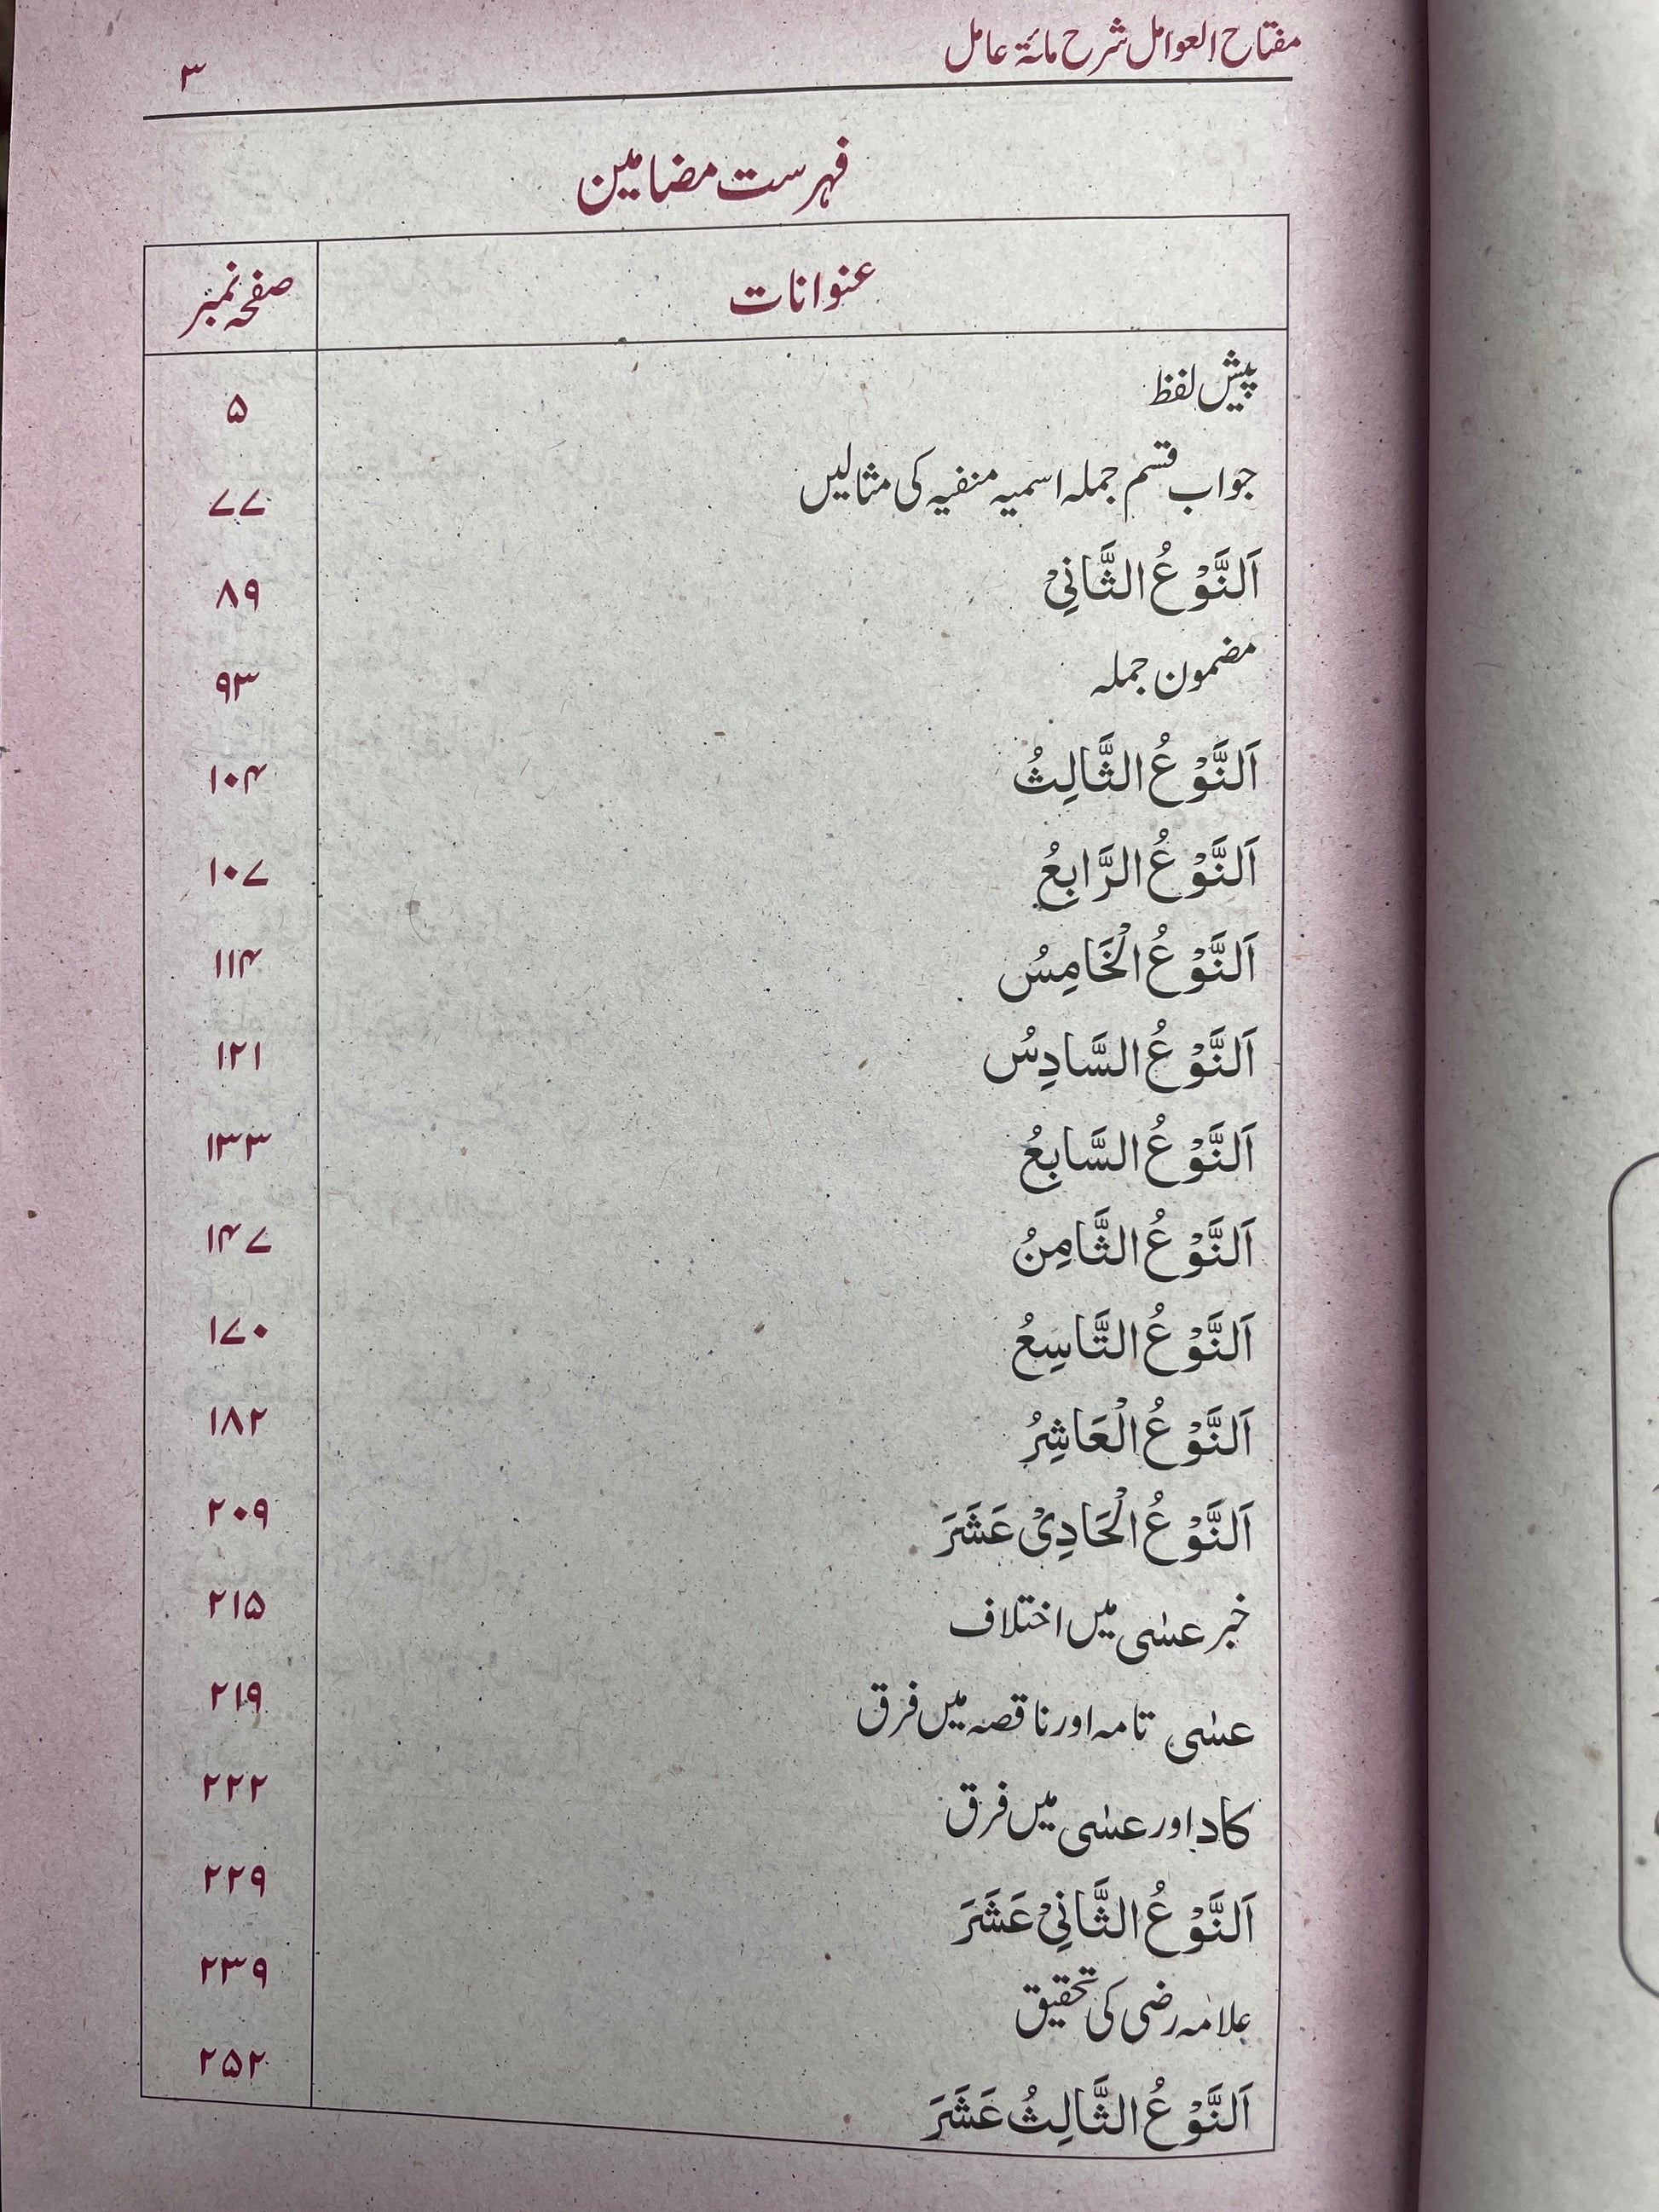 مفتاح العوامل شرح مائۃ عامل ۳
فہرست مضامین
عنوانات صفحہ نمبر
پیش لفظ ۵
جواب قسم جملہ اسمیہ منفیہ کی مثالیں ۷۷
اَلنَّوْعُ الثَّانِيْ ۸۹
مضمون جملہ ۹۳
اَلنَّوْعُ الثَّالِثُ ۱۰۴
اَلنَّوْعُ الرَّابِعُ ۱۰۷
اَلنَّوْعُ الْخَامِسُ ۱۱۴
اَلنَّوْعُ السَّادِسُ ۱۲۱
اَلنَّوْعُ السَّابِعُ ۱۳۳
اَلنَّوْعُ الثَّامِنُ ۱۴۷
اَلنَّوْعُ التَّاسِعُ ۱۷۰
اَلنَّوْعُ الْعَاشِرُ ۱۸۲
اَلنَّوْعُ الْحَادِيْ عَشَرَ ۲۰۹
خبر عسٰی میں اختلاف ۲۱۵
عسٰی تامہ اور ناقصہ میں فرق ۲۱۹
کاد اور عسٰی میں فرق ۲۲۲
اَلنَّوْعُ الثَّانِيْ عَشَرَ ۲۲۹
علامہ رضی کی تحقیق ۲۳۹
اَلنَّوْعُ الثَّالِثُ عَشَرَ ۲۵۲